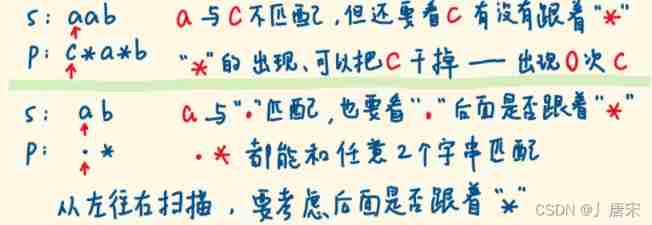 s: aab a 与 c 不匹配,但还要看 c 有没有跟着“*”
p: c*a*b “*”的出现、可以把 c 干掉 —— 出现 0 次 c
s: ab a 与“.”匹配,也要看“.”后面是否跟着“*”
p: .* .* 都能和任意2个字串匹配
从左往右扫描,要考虑后面是否跟着“*”
CSDN @丿唐宋